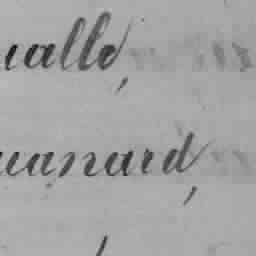 ualld,
uanard,